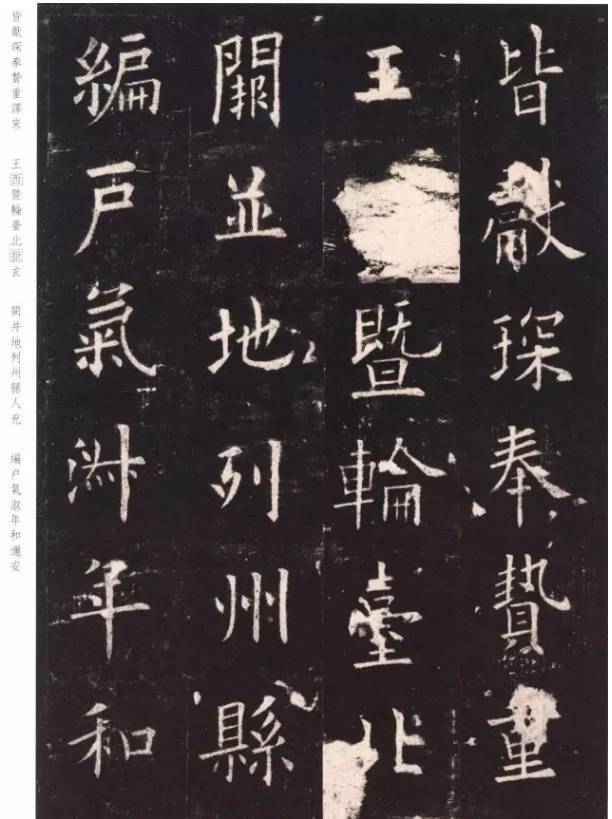 皆獻琛奉贄重
王暨輪臺北
闕並地列州縣
編戶氣淑年和
皆獻琛奉贄重譯來　王西暨輪臺北拒玄　闕并地列州縣人充　編户氣淑年和邇安